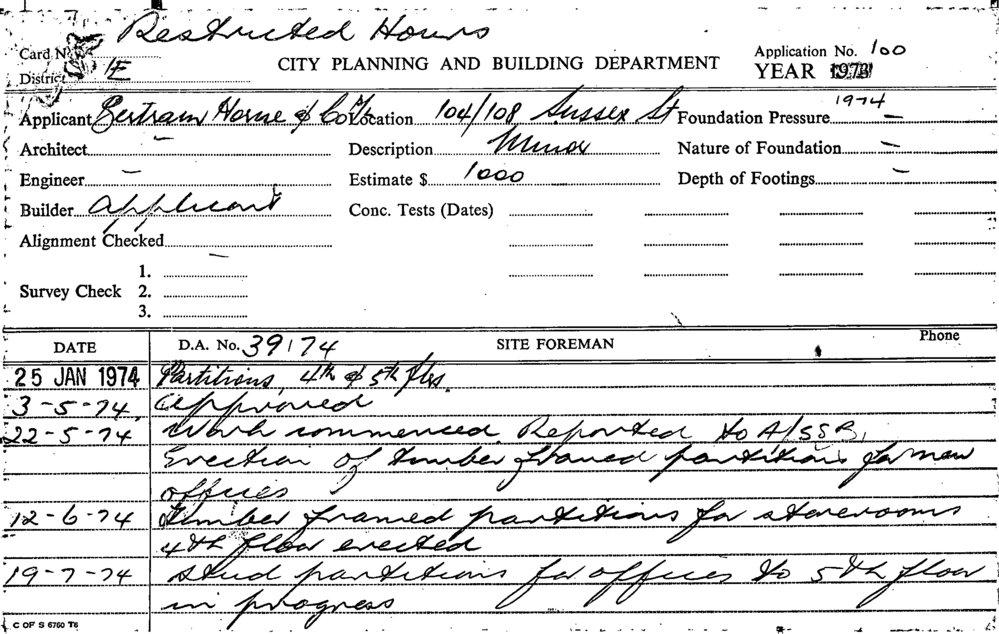 Restricted Hours
Card No.
District E
CITY PLANNING AND BUILDING DEPARTMENT
Application No. 100
YEAR 1973
1974
Applicant Bertram Horne & Co P/L
Location 104/108 Sussex St
Foundation Pressure –
Architect –
Description Minor
Nature of Foundation –
Engineer –
Estimate $ 1000
Depth of Footings –
Builder Applicant
Conc. Tests (Dates)
Alignment Checked –
Survey Check 1.
2.
3.
DATE D.A. No. 39/74 SITE FOREMAN Phone
25 JAN 1974 Partitions, 4th & 5th flrs.
3-5-74 Approved
22-5-74 Work commenced. Reported to A/SSB,
Erection of timber framed partitions for new
offices
12-6-74 Timber framed partitions for storerooms
4th floor erected
19-7-74 Stud partitions for offices to 5th floor
in progress
C OF S 6760 T6